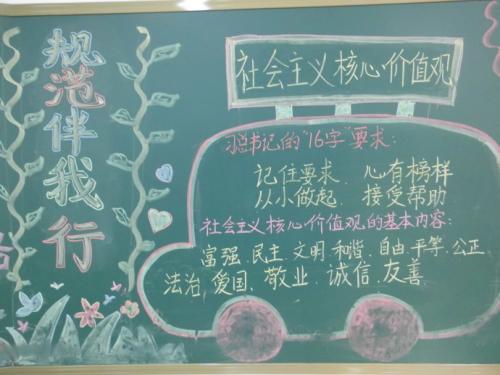 规范伴我行
社会主义核心价值观
习总书记的"16字"要求:
记住要求、心有榜样
从小做起、接受帮助
社会主义核心价值观的基本内容:
富强、民主、文明、和谐、自由、平等、公正、
法治、爱国、敬业、诚信、友善